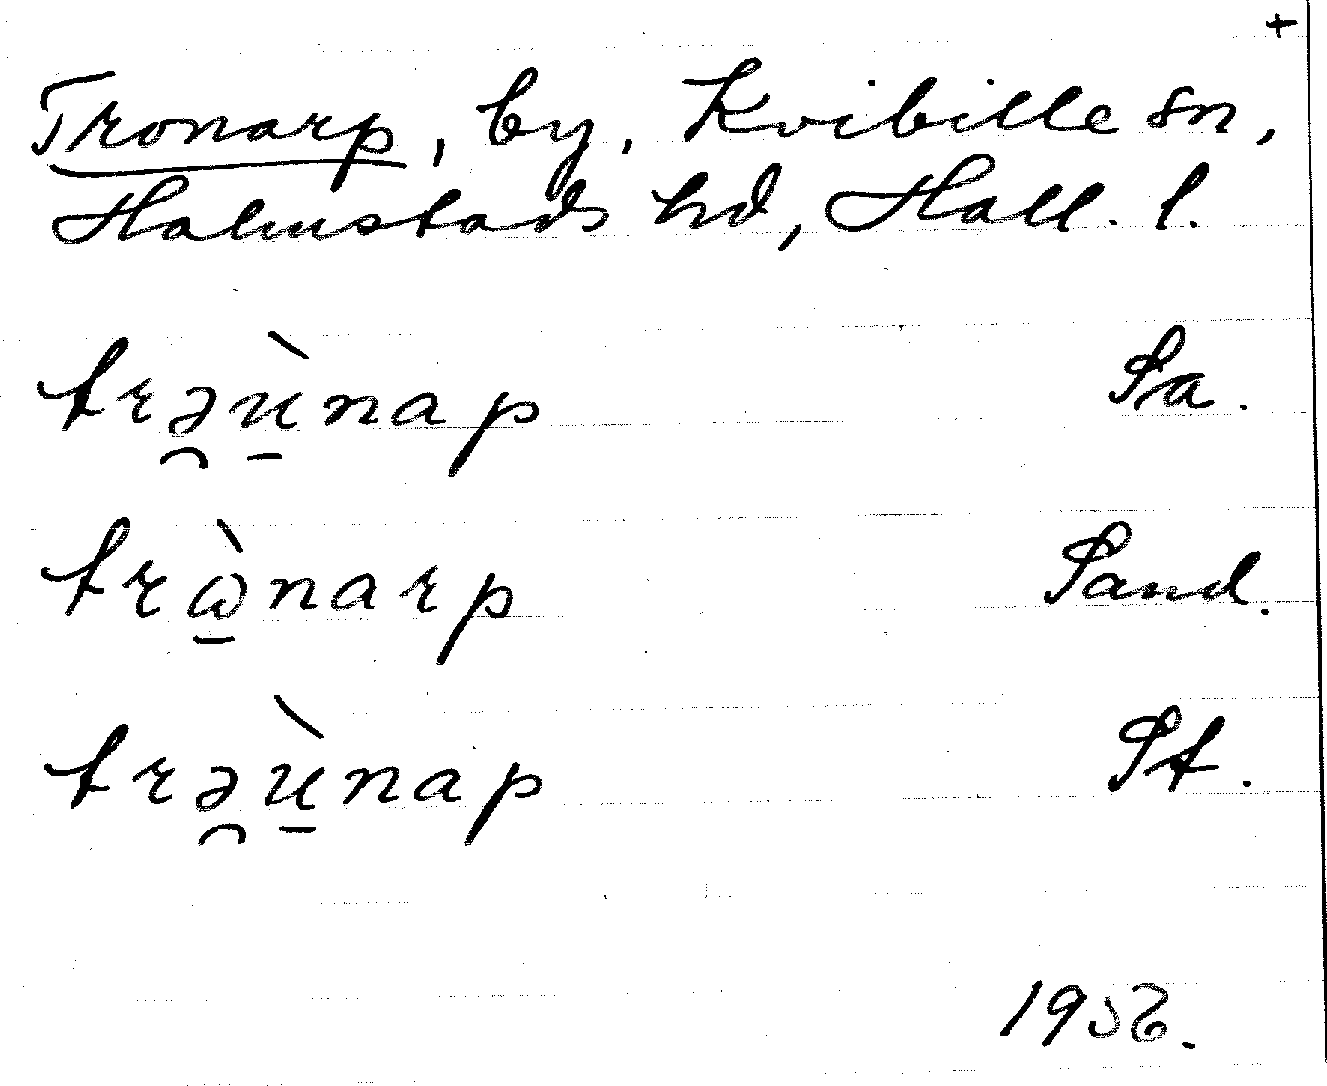 +
Tronarp, by, Kvibille sn,
Halmstads hd, Hall. l.
trə̯ù̱nap Sa.
trὼ̱narp Sand.
trə̯ù̱nap St.
1956.